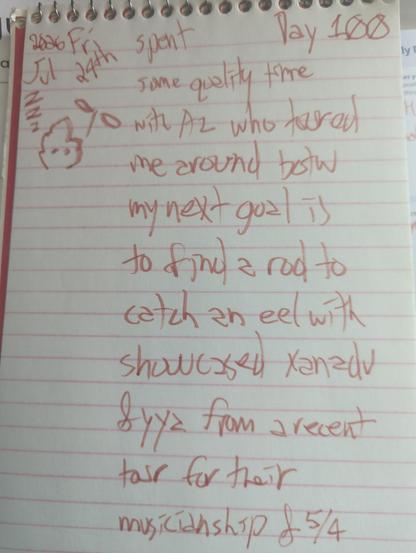 2026 Fri spent Day 188
Jul 24th some quality time
zzzz with Az who toured
me around botw
my next goal is
to find a rod to
catch an eel with
showcased xanadu
& yyz from a recent
tour for their
musicianship & 5/4